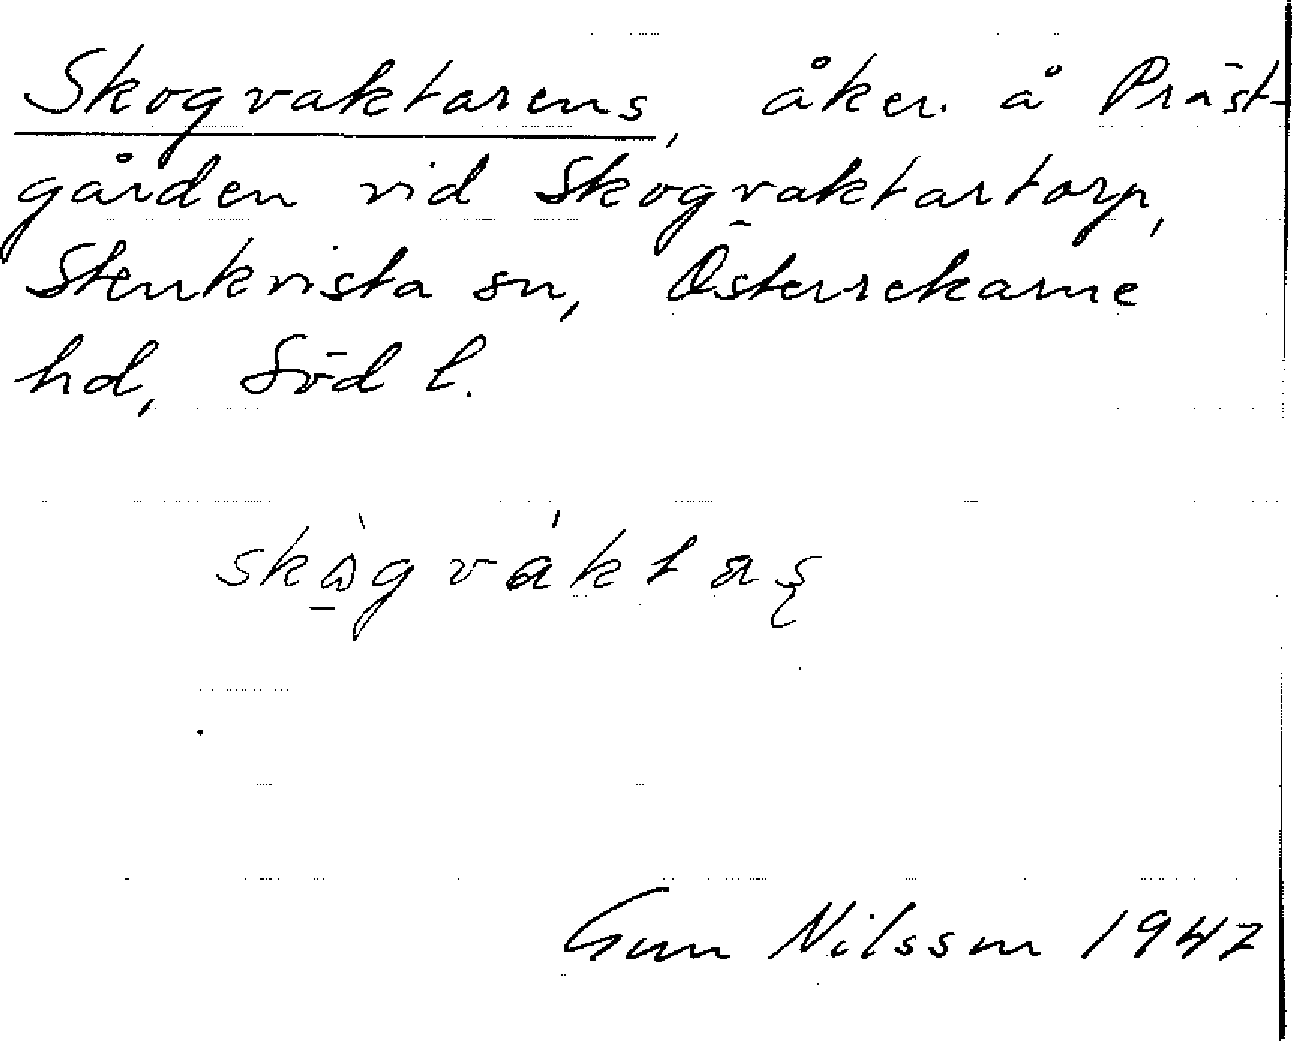 Skogvaktarens, åker å Präst-
gården vid Skogvaktartorp,
Stenkvista sn, Österrekarne
hd, Söd l.
Gun Nilsson 1947